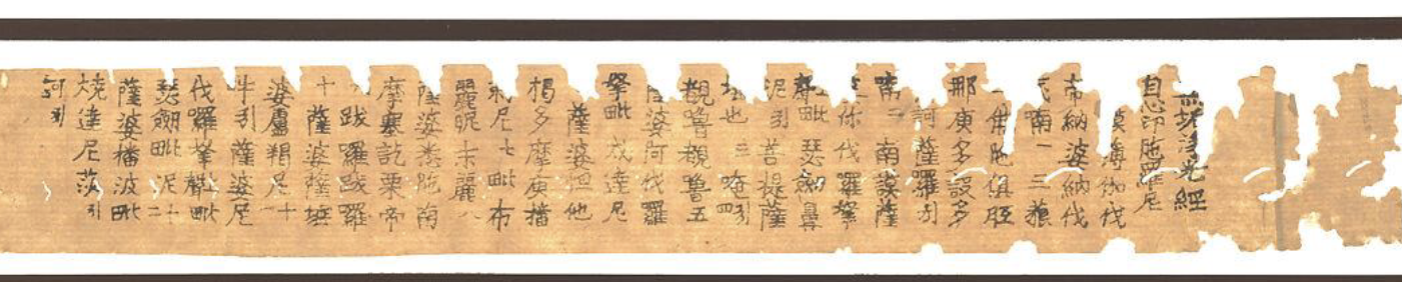 無垢淨光經
自心印陀羅尼
謨薄伽伐
帝納婆納伐
底喃一 三藐
佛陀俱胝
那庾多設多
訶薩羅引
喃二 南謨薩
你伐羅拏
毗瑟劒鼻
泥引 菩提薩
埵也 三 唵四
覩嚕覩嚕五
薩婆阿伐羅
拏毗戍達尼
薩婆怛他
揭多摩庾播
剌尼七 毗布
麗昵末麗八
薩婆悉陀南
摩塞訖栗帝
跋羅跋羅
十 薩婆薩埵
婆盧羯尼十
吽引 薩婆尼
伐羅拏毗
瑟劒毗泥十二
薩婆播波毗
燒達尼莎引
訶引